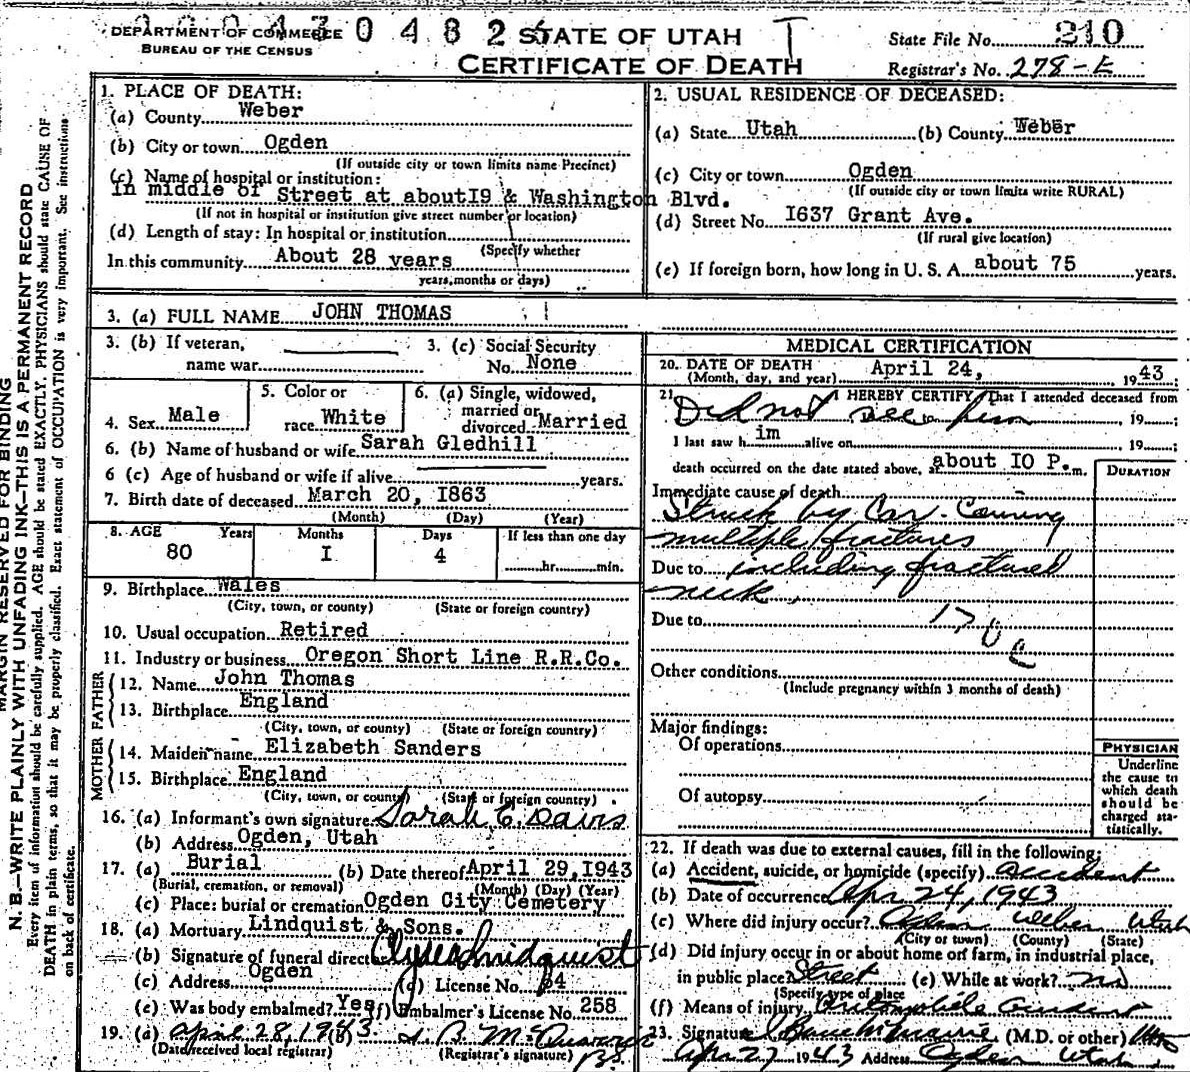 DEPARTMENT OF COMMERCE
BUREAU OF THE CENSUS
0 4 8 2
STATE OF UTAH
CERTIFICATE OF DEATH
State File No. 210
Registrar's No. 278-E
MARGIN RESERVED FOR BINDING
N. B.—WRITE PLAINLY WITH UNFADING INK—THIS IS A PERMANENT RECORD
Every item of information should be carefully supplied. AGE should be stated EXACTLY. PHYSICIANS should state CAUSE OF
DEATH in plain terms, so that it may be properly classified. Exact statement of OCCUPATION is very important. See instructions
on back of certificate.
1. PLACE OF DEATH:
(a) County Weber
(b) City or town Ogden
(If outside city or town limits name Precinct)
(c) Name of hospital or institution:
In middle of Street at about I9 & Washington Blvd.
(If not in hospital or institution give street number or location)
(d) Length of stay: In hospital or institution
(Specify whether
In this community About 28 years
years, months or days)
2. USUAL RESIDENCE OF DECEASED:
(a) State Utah (b) County Weber
(c) City or town Ogden
(If outside city or town limits write RURAL)
(d) Street No. I637 Grant Ave.
(If rural give location)
(e) If foreign born, how long in U. S. A. about 75 years.
3. (a) FULL NAME JOHN THOMAS
3. (b) If veteran,
name war
3. (c) Social Security
No. None
4. Sex Male
5. Color or
race White
6. (a) Single, widowed,
married or
divorced Married
6. (b) Name of husband or wife Sarah Gledhill
6 (c) Age of husband or wife if alive years.
7. Birth date of deceased March 20, I863
(Month) (Day) (Year)
8. AGE Years Months Days If less than one day
80 I 4 hr. min.
9. Birthplace Wales
(City, town, or county) (State or foreign country)
10. Usual occupation Retired
11. Industry or business Oregon Short Line R.R.Co.
FATHER
12. Name John Thomas
13. Birthplace England
(City, town, or county) (State or foreign country)
MOTHER
14. Maiden name Elizabeth Sanders
15. Birthplace England
(City, town, or county) (State or foreign country)
16. (a) Informant's own signature Sarah E. Davis
(b) Address Ogden, Utah
17. (a) Burial (b) Date thereof April 29, 1943
(Burial, cremation, or removal) (Month) (Day) (Year)
(c) Place: burial or cremation Ogden City Cemetery
18. (a) Mortuary Lindquist & Sons.
(b) Signature of funeral director Clyde Lindquist
(c) Address Ogden (d) License No. 64
(e) Was body embalmed? Yes (f) Embalmer's License No. 258
19. (a) April 28, 1943
(Date received local registrar) (Registrar's signature)
MEDICAL CERTIFICATION
20. DATE OF DEATH
(Month, day, and year) April 24, 1943;
21. I HEREBY CERTIFY, That I attended deceased from
Did not see him to , 19 ;
I last saw him alive on 19 ;
death occurred on the date stated above, at about IO P. m.
DURATION
Immediate cause of death
Struck by Car. Causing
multiple fractures
Due to including fractured
neck,
Due to 170 c
Other conditions
(Include pregnancy within 3 months of death)
Major findings:
Of operations
Of autopsy
PHYSICIAN
Underline
the cause to
which death
should be
charged sta-
tistically.
22. If death was due to external causes, fill in the following:
(a) Accident, suicide, or homicide (specify) Accident
(b) Date of occurrence Apr 24, 1943
(c) Where did injury occur? Ogden Weber Utah
(City or town) (County) (State)
(d) Did injury occur in or about home or farm, in industrial place,
in public place? Street (e) While at work? no
(Specify type of place
(f) Means of injury Automobile Accident
23. Signature (M.D. or other)
Apr 27 1943 Address Ogden Utah